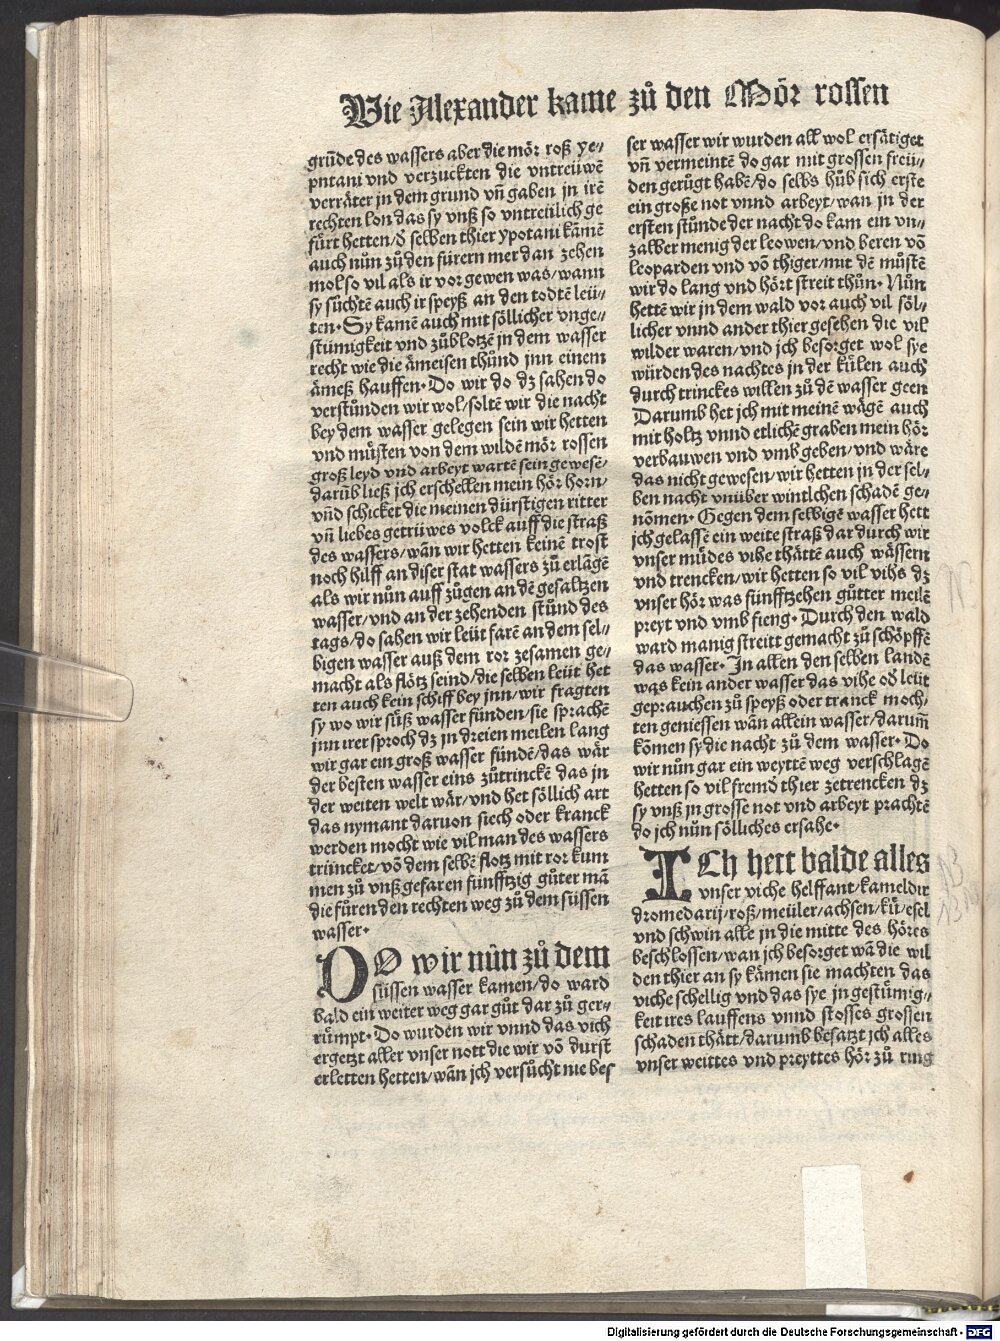 Wie Alexander kame zů den Mör rossen
grũde des wassers aber die mör roß ye⸗
pntani vnd verzuckten die vntreuwē
verräter in dem grund vñ gaben jn irē
rechten lon das sy vnß so vntreülich ge
fürt hetten/ð selben thier ypotani kāmē
auch nůn zů den fürern mer dan zehen
mol so vil als ir vor gewen was/wann
sy sůchtē auch ir speyß an den todtē leü⸗
ten. Sy kamē auch mit söllicher vnge⸗
stümigkeit vnd zůblotzē in dem wasser
recht wie die ämeisen thůnd jnn einem
ämeß hauffen. Do wir do dz sahen do
verstůnden wir wol/soltē wir die nacht
bey dem wasser gelegen sein wir hetten
vnd můsten von dem wildē mör rossen
groß leyd vnd arbeyt wartē sein gewesē/
darũb ließ jch erschellen mein hör horn/
vnd schicket die meinen dürstigen ritter
vñ liebes getrüwes volck auff die straß
des wassers/wān wir hetten keinē trost
noch hilff an diser stat wassers zů erlāgē
als wir nůn auff zůgen an dē gesaltzen
wasser/vnd an der zehenden stůnd des
tags/do sahen wir leüt farē an dem sel⸗
bigen wasser auß dem ror zesamen ge⸗
macht als flötz seind/die selben leüt het
ten auch kein schiff bey jnn/wir fragten
sy wo wir süß wasser fünden/sie sprachē
jnn irer sproch dz in dreien meilen lang
wir gar ein groß wasser fundē/das wär
der besten wasser eins zůtrinckē das jn
der weiten welt wär/vnd het söllich art
das nymant daruon siech oder kranck
werden mocht wie vil man des wassers
trüncket/vō dem selbē flotz mit ror kum
men zů vnß gefaren fünfftzig gůter mā
die fůren den rechten weg zů dem süssen
wasser.
DO wir nůn zů dem
süssen wasser kamen/do ward
bald ein weiter weg gar gůt dar zů ger⸗
rümpt. Do wurden wir vnnd das vich
ergetzt aller vnser nott die wir vō durst
erletten hetten/wān jch versůcht nie bes
ser wasser wir wurden all wol ersätiget
vñ vermeintē do gar mit grossen freü⸗
den gerůgt habē/do selbs hůb sich erste
ein große not vnnd arbeyt/wan in der
ersten stůnde der nacht do kam ein vn⸗
zalber menig der leowen/vnd beren vō
leoparden vnd vō thiger/mit dē můstē
wir do lang vnd hört streit thůn. Nůn
hettē wir jn dem wald vor auch vil söl⸗
licher vnnd ander thier gesehen die vil
wilder waren/vnd jch besorget wol sye
würden des nachtes in der külen auch
durch trinckes willen zů dē wasser geen
Darumb het jch mit meinē wägē auch
mit holtz vnnd etlichē graben mein hör
verbauwen vnd vmb geben/vnd wäre
das nicht gewesen/wir hetten jn der sel⸗
ben nacht vnüber wintlchen schadē ge⸗
nōmen. Gegen dem selbigē wasser hett
jch gelassē ein weite straß dar durch wir
vnser müdes vihe thättē auch wässern
vnd trencken/wir hetten so vil vihs dz
vnser hör was fünfftzehen gůtter meilē
preyt vnd vmb fieng. Durch den wald
ward manig streitt gemacht zů schöpffē
das wasser. In allen den selben landē
was kein ander wasser das vihe oð leüt
geprauchen zů speyß oder tranck moch⸗
ten geniessen wān allein wasser/darum̃
kōmen sy die nacht zů dem wasser. Do
wir nůn gar ein weyttē weg verschlagē
hetten so vil fremd thier zetrencken dz
sy vnß jn grosse not vnd arbeyt prachtē
do ich nůn söllliches ersahe.
ICh hett balde alles
vnser viche helffant/kameldir
dromedarij/roß/meüler/achsen/kü/esel
vnd schwin alle jn die mitte des höres
beschlossen/wan jch besorget wā die wil
den thier an sy kämen sie machten das
viche schellig vnd das sye jn gestümig⸗
keit ires lauffens vnnd stosses grossen
schaden thätt/darumb besatzt jch alles
vnser weittes vnd preyttes hör zů ring
Digitalisierung gefördert durch die Deutsche Forschungsgemeinschaft - DFG